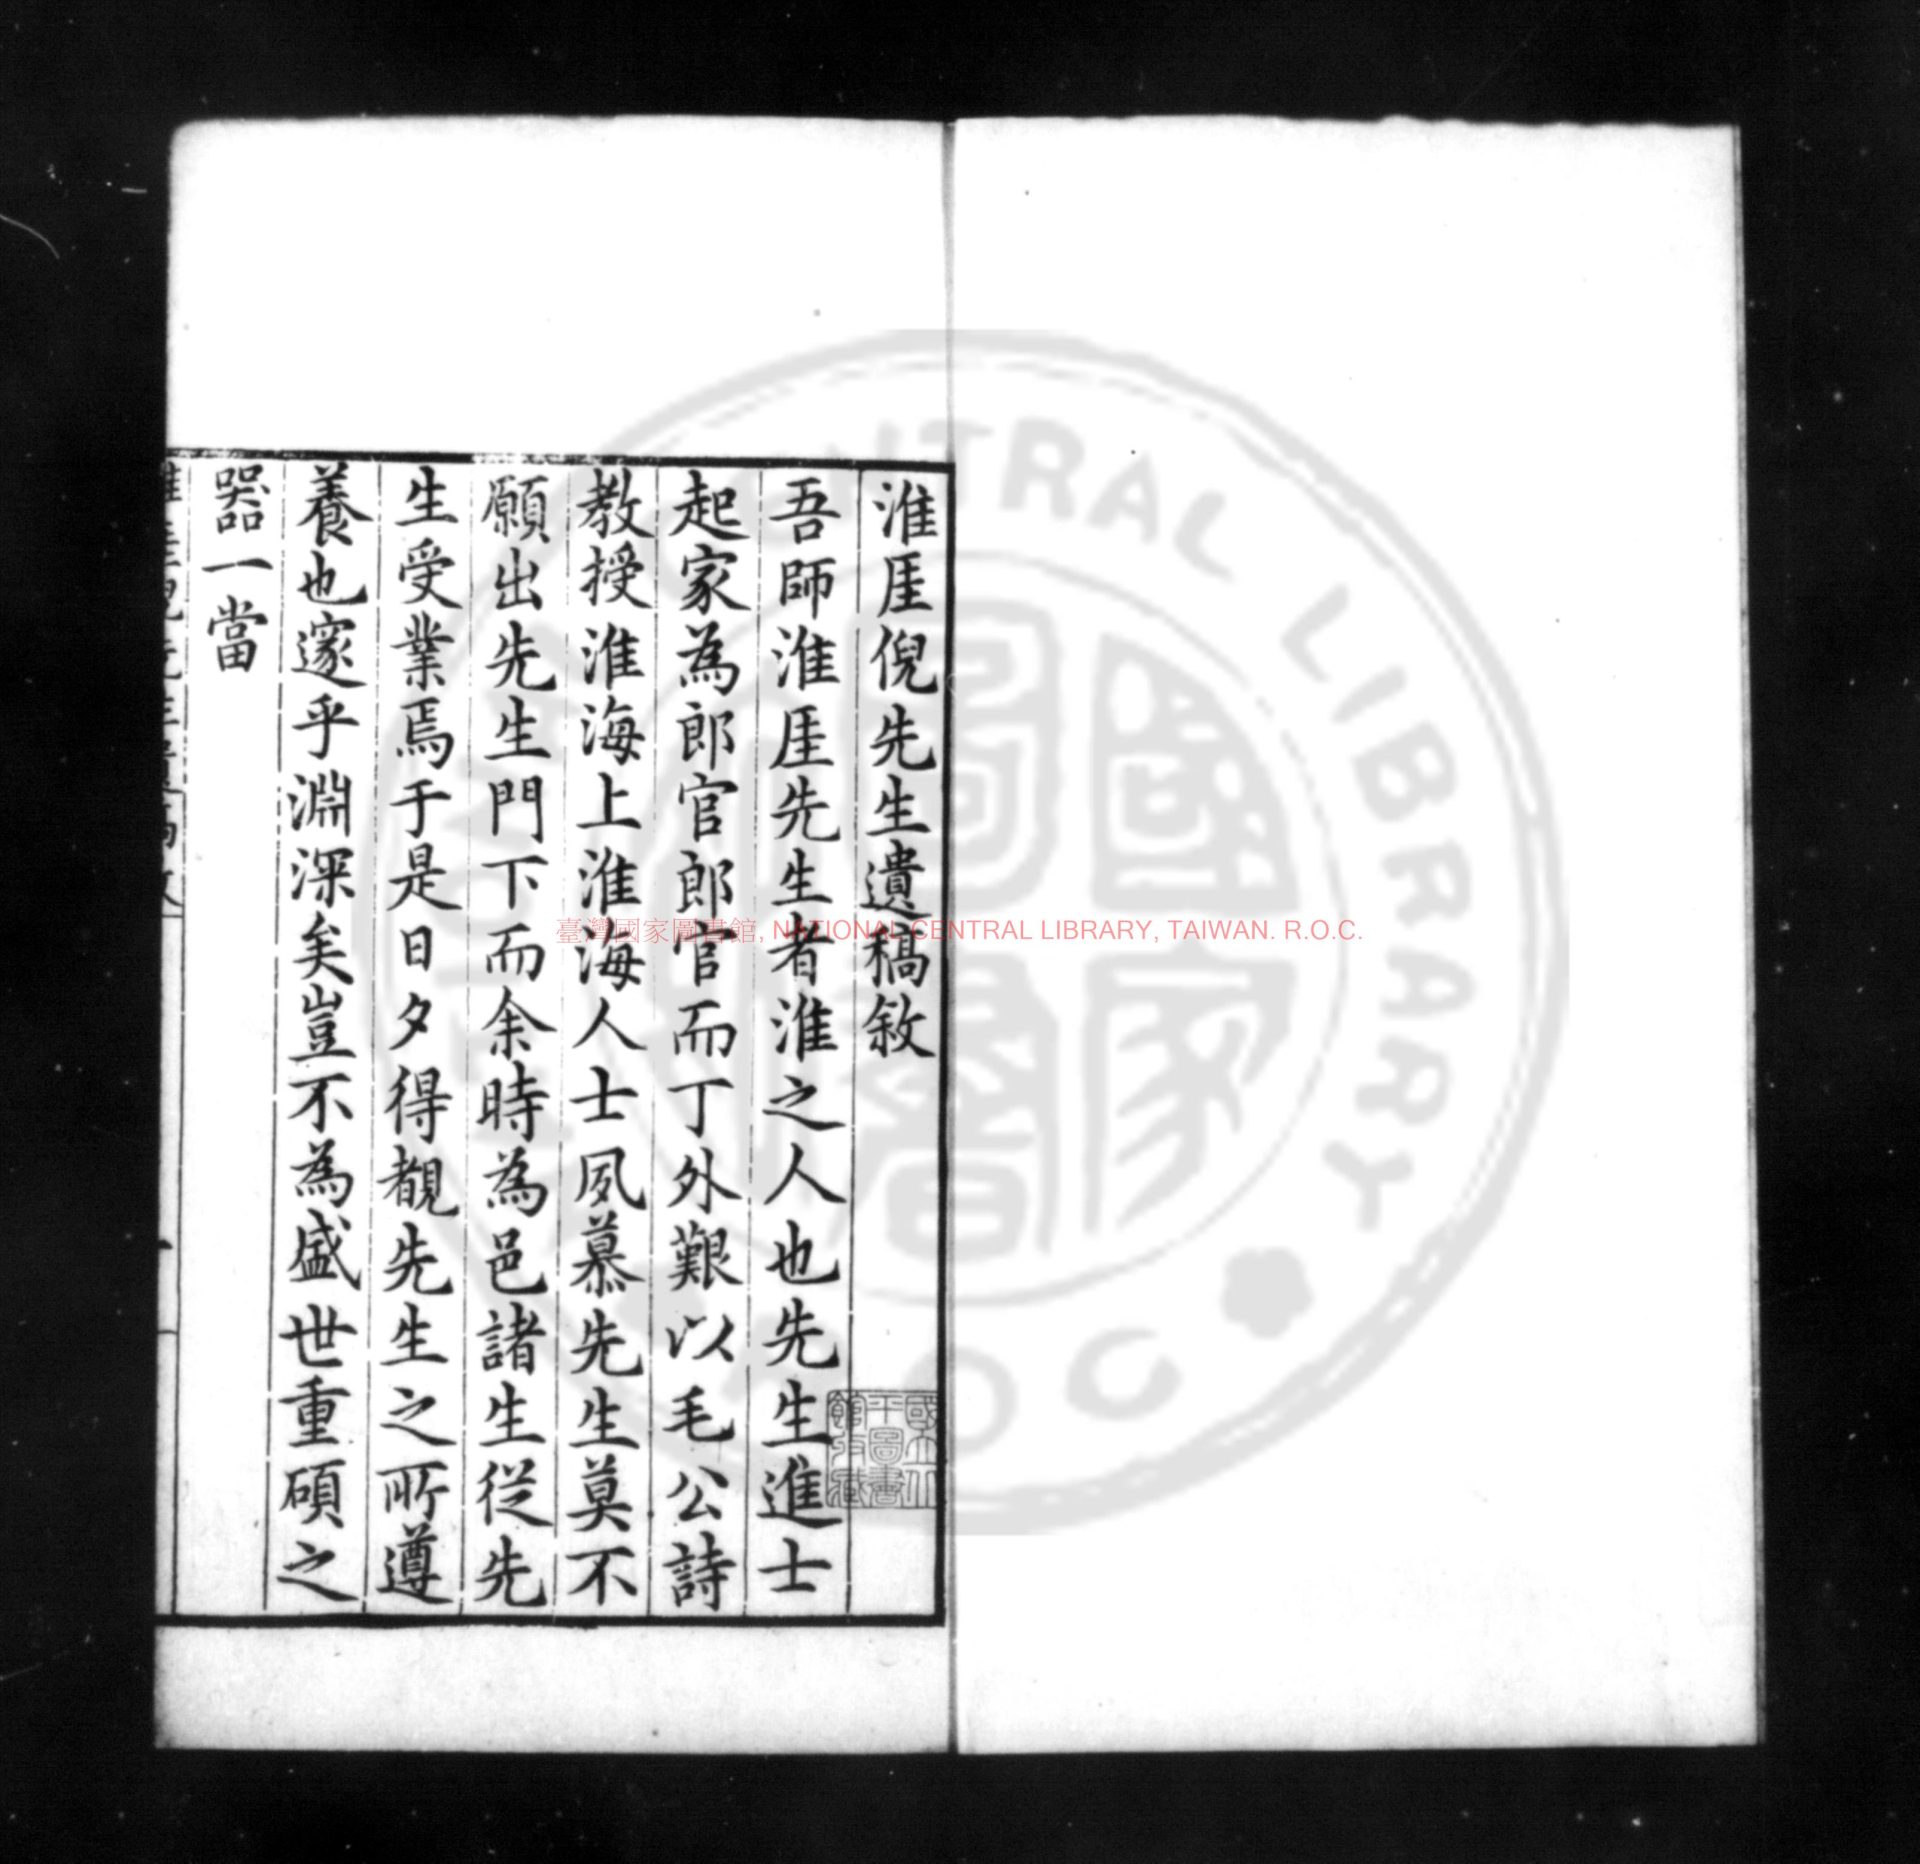 淮厓倪先生遺稿敘
吾師淮厓先生者淮之人也先生進士
起家為郎官郎官而丁外艱以毛公詩
教授淮海上淮海人士夙慕先生莫不
願出先生門下而余時為邑諸生從先
生受業焉于是日夕得覩先生之所遵
養也邃乎淵深矣豈不為盛世重碩之
器一當
國立北
平圖書
館收藏
臺灣國家圖書館, NATIONAL CENTRAL LIBRARY, TAIWAN. R.O.C.